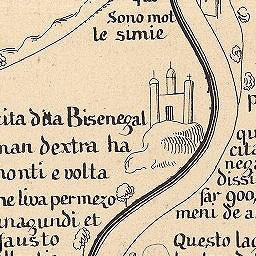 Sono mot
le simie
cita d'tta Bisenegal
man dextra ha
monti e volta
ne liva per mezo
magundi et
fausto
qu
cita
nega
dissi
far 900,
meni de a
Questo lag